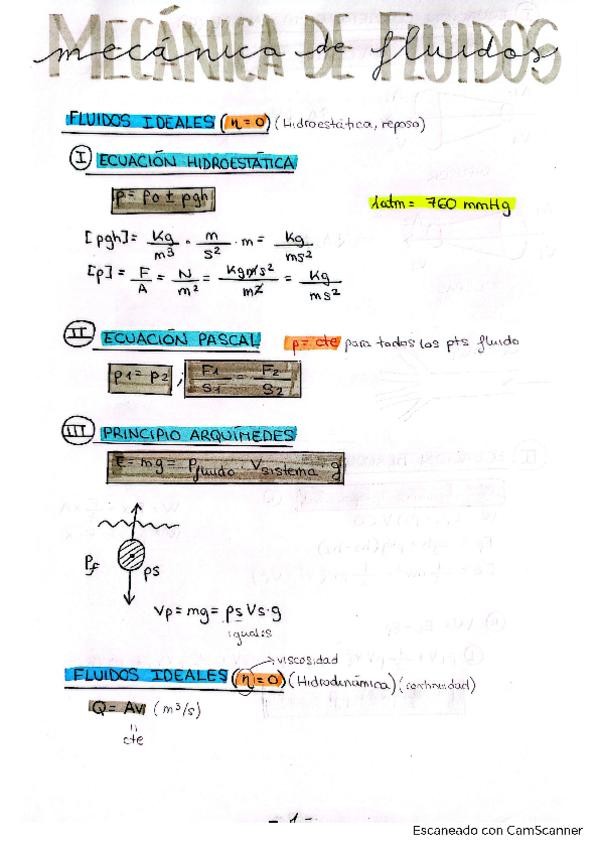 MECÁNICA DE FLUIDOS
mecánica de fluidos
FLUIDOS IDEALES (η=0) (Hidroestática, reposo)
I ECUACIÓN HIDROESTÁTICA
p = p0 ± ρgh
1atm = 760 mmHg
[ρgh] = Kg/m³ · m/s² · m = kg/ms²
[p] = F/A = N/m² = kgm/s²/m² = kg/ms²
II ECUACIÓN PASCAL p = cte para todos los pts fluido
p1 = p2 , F1/S1 = F2/S2
III PRINCIPIO ARQUÍMEDES
E = mg = ρfluido · Vsistema · g
ρf ρs
Vp = mg = ρs Vs · g
iguales
viscosidad
FLUIDOS IDEALES (η=0) (Hidrodinámica) (continuidad)
Q = Av (m³/s)
cte
- 1 -
Escaneado con CamScanner